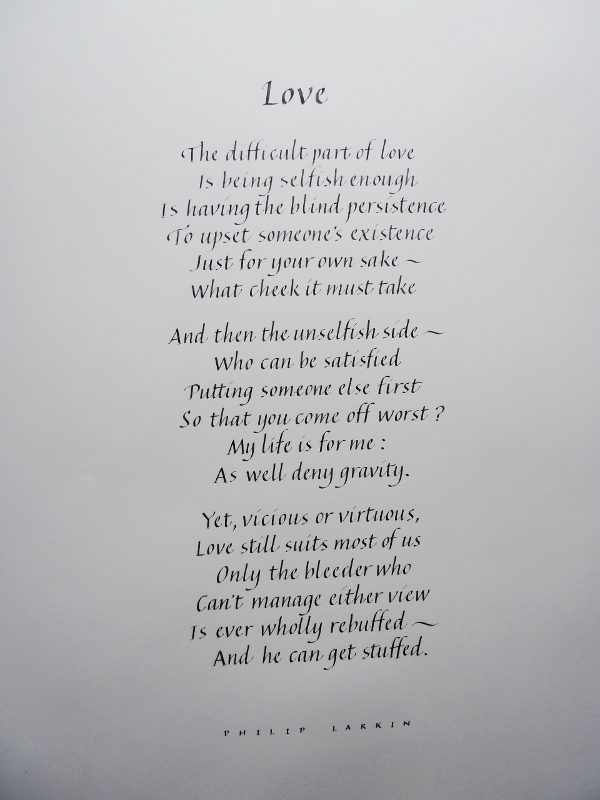 Love
The difficult part of love
Is being selfish enough
Is having the blind persistence
To upset someone's existence
Just for your own sake ~
What cheek it must take
And then the unselfish side ~
Who can be satisfied
Putting someone else first
So that you come off worst ?
My life is for me :
As well deny gravity.
Yet, vicious or virtuous,
Love still suits most of us
Only the bleeder who
Can't manage either view
Is ever wholly rebuffed ~
And he can get stuffed.
PHILIP LARKIN